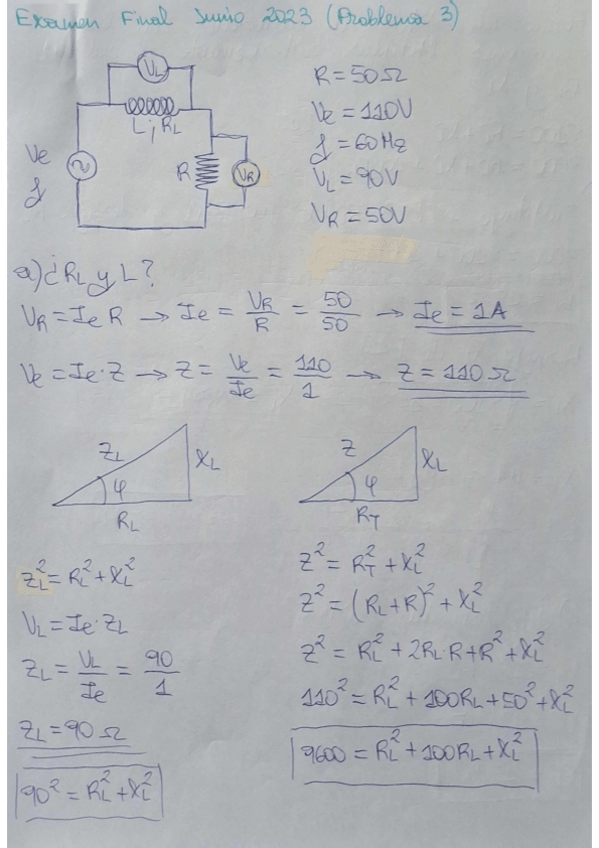 Examen Final Junio 2023 (Problema 3)
VL
L; RL
Ve
f
R
VR
R = 50 Ω
Ve = 110V
f = 60 Hz
VL = 90V
VR = 50V
a) ¿RL y L?
VR = Ie R → Ie = VR/R = 50/50 → Ie = 1A
Ve = Ie · Z → Z = Ve/Ie = 110/1 → Z = 110 Ω
ZL
XL
φ
RL
Z
XL
φ
RT
ZL² = RL² + XL²
VL = Ie · ZL
ZL = VL/Ie = 90/1
ZL = 90 Ω
90² = RL² + XL²
Z² = RT² + XL²
Z² = (RL + R)² + XL²
Z² = RL² + 2RL·R + R² + XL²
110² = RL² + 100RL + 50² + XL²
9600 = RL² + 100RL + XL²